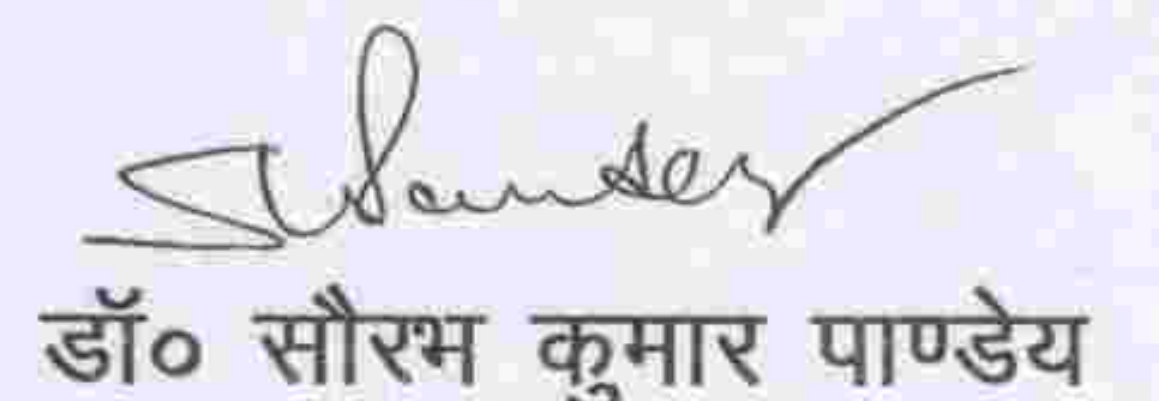 डॉ० सौरभ कुमार पाण्डेय